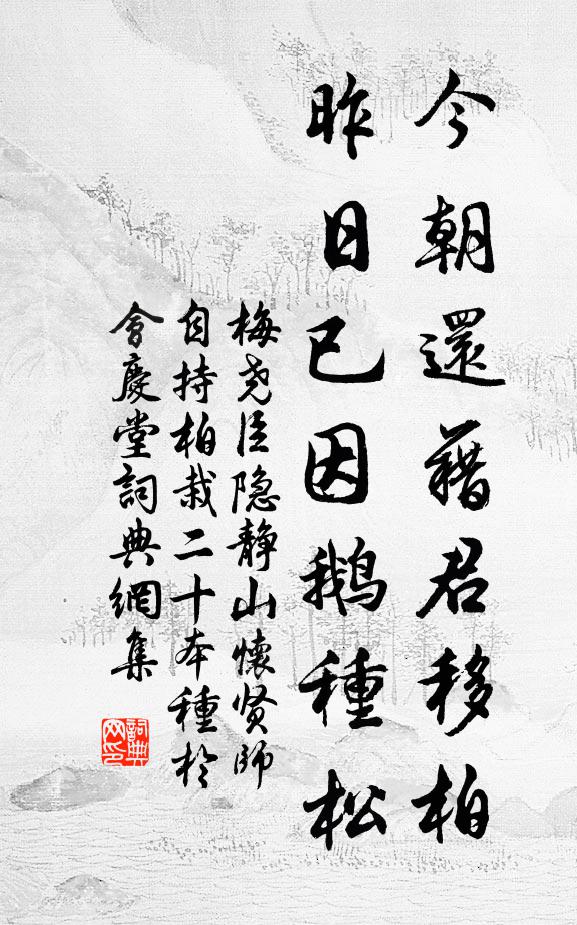 今朝還藉君移柏
昨日已因鹅種松
梅尧臣隐静山懷贤師
自持柏栽二十本種於
會慶堂詞典網集
詞典网印